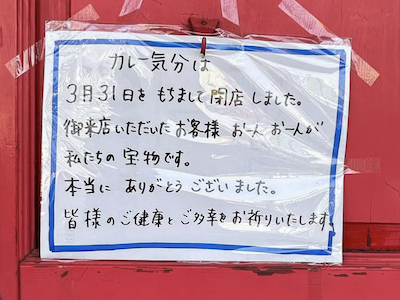 カレー気分は
3月31日をもちまして閉店しました。
御来店いただいたお客様お一人お一人が
私たちの宝物です。
本当にありがとうございました。
皆様のご健康とご多幸をお祈りいたします。